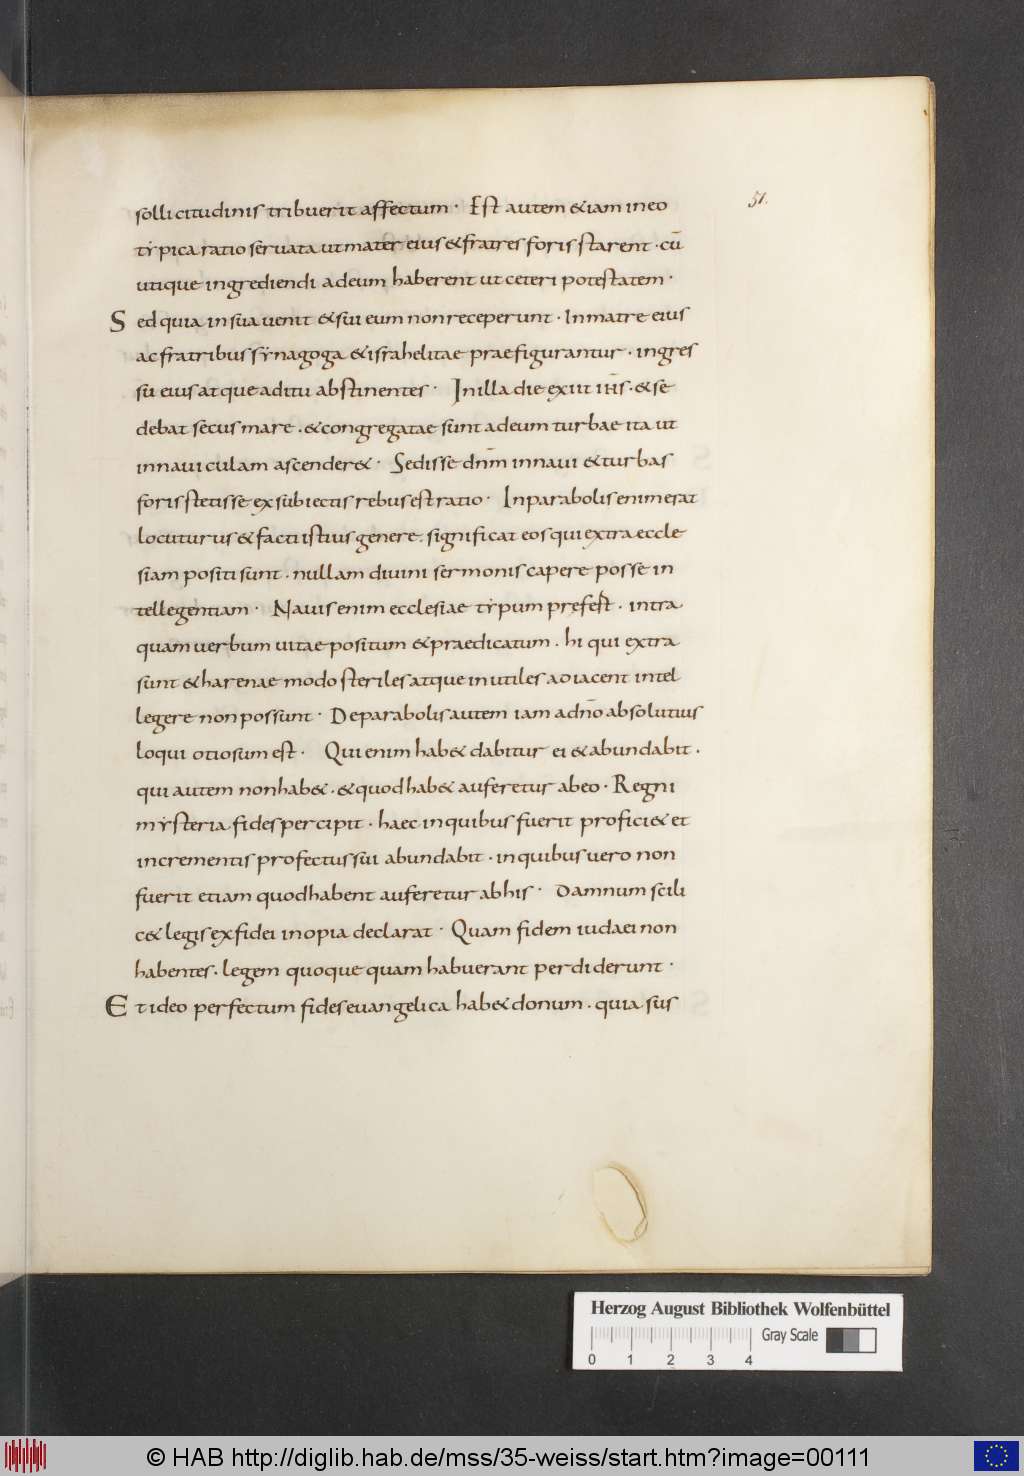 51.
sollicitudinis tribuerit affectum · Est autem &iam in eo
typica ratio servata ut mater eius & fratres foris starent · cū
utique ingrediendi ad eum haberent ut ceteri potestatem ·
Sed quia in sua venit & sui eum non receperunt · In matre eius
ac fratribus synagoga & israhelitae praefigurantur · ingres
su eius atque aditu abstinentes · In illa die exiit ih̅s · & se
debat secus mare · & congregatae sunt ad eum turbae ita ut
in naviculam ascender& · Sedisse dnm̅ in navi & turbas
foris stetisse ex subiectis rebus est ratio · In parabolis enim erat
locuturus & facti istius genere · significat eos qui extra eccle
siam positi sunt · nullam divini sermonis capere posse in
tellegentiam · Navis enim ecclesiae typum prefest · intra
quam verbum vitae positum & praedicatum · hi qui extra
sunt & harenae modo steriles atque inutiles adiacent intel
legere non possunt · De parabolis autem iam a dn̅o absolutius
loqui otiosum est · Qui enim hab& dabitur ei & abundabit ·
qui autem non hab& · & quod hab& auferetur ab eo · Regni
mysteria fides percipit · haec in quibus fuerit profici& et
incrementis profectus sui abundabit · in quibus vero non
fuerit etiam quod habent auferetur ab his · Damnum scili
c& legis ex fidei inopia declarat · Quam fidem iudaei non
habentes · legem quoque quam habuerant perdiderunt ·
Et ideo perfectum fides evangelica hab& donum · quia sus
Herzog August Bibliothek Wolfenbüttel
Gray Scale
0 1 2 3 4
© HAB http://diglib.hab.de/mss/35-weiss/start.htm?image=00111